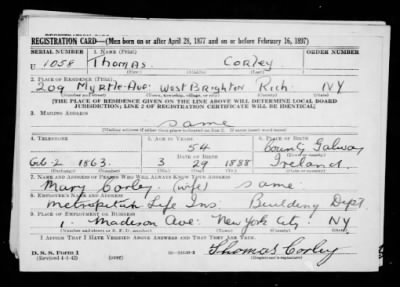 REGISTRATION CARD—(Men born on or after April 28, 1877 and on or before February 16, 1897)
SERIAL NUMBER 1. NAME (Print) ORDER NUMBER
U 1058 Thomas. Corley
2. PLACE OF RESIDENCE (Print)
209 Myrtle Ave: West Brighton Rich. NY
[THE PLACE OF RESIDENCE GIVEN ON THE LINE ABOVE WILL DETERMINE LOCAL BOARD
JURISDICTION; LINE 2 OF REGISTRATION CERTIFICATE WILL BE IDENTICAL]
3. MAILING ADDRESS
same
4. TELEPHONE 5. AGE IN YEARS 6. PLACE OF BIRTH
54 County Galway
DATE OF BIRTH
Gib-2 1863. 3 29 1888 Ireland.
7. NAME AND ADDRESS OF PERSON WHO WILL ALWAYS KNOW YOUR ADDRESS
Mary Corley (wife) same.
8. EMPLOYER'S NAME AND ADDRESS
Metropolitan Life Ins. Building Dept.
9. PLACE OF EMPLOYMENT OR BUSINESS
1 - Madison Ave: New York City. NY
I AFFIRM THAT I HAVE VERIFIED ABOVE ANSWERS AND THAT THEY ARE TRUE.
D. S. S. Form 1 Thomas Corley
(Revised 4-1-42) (over)